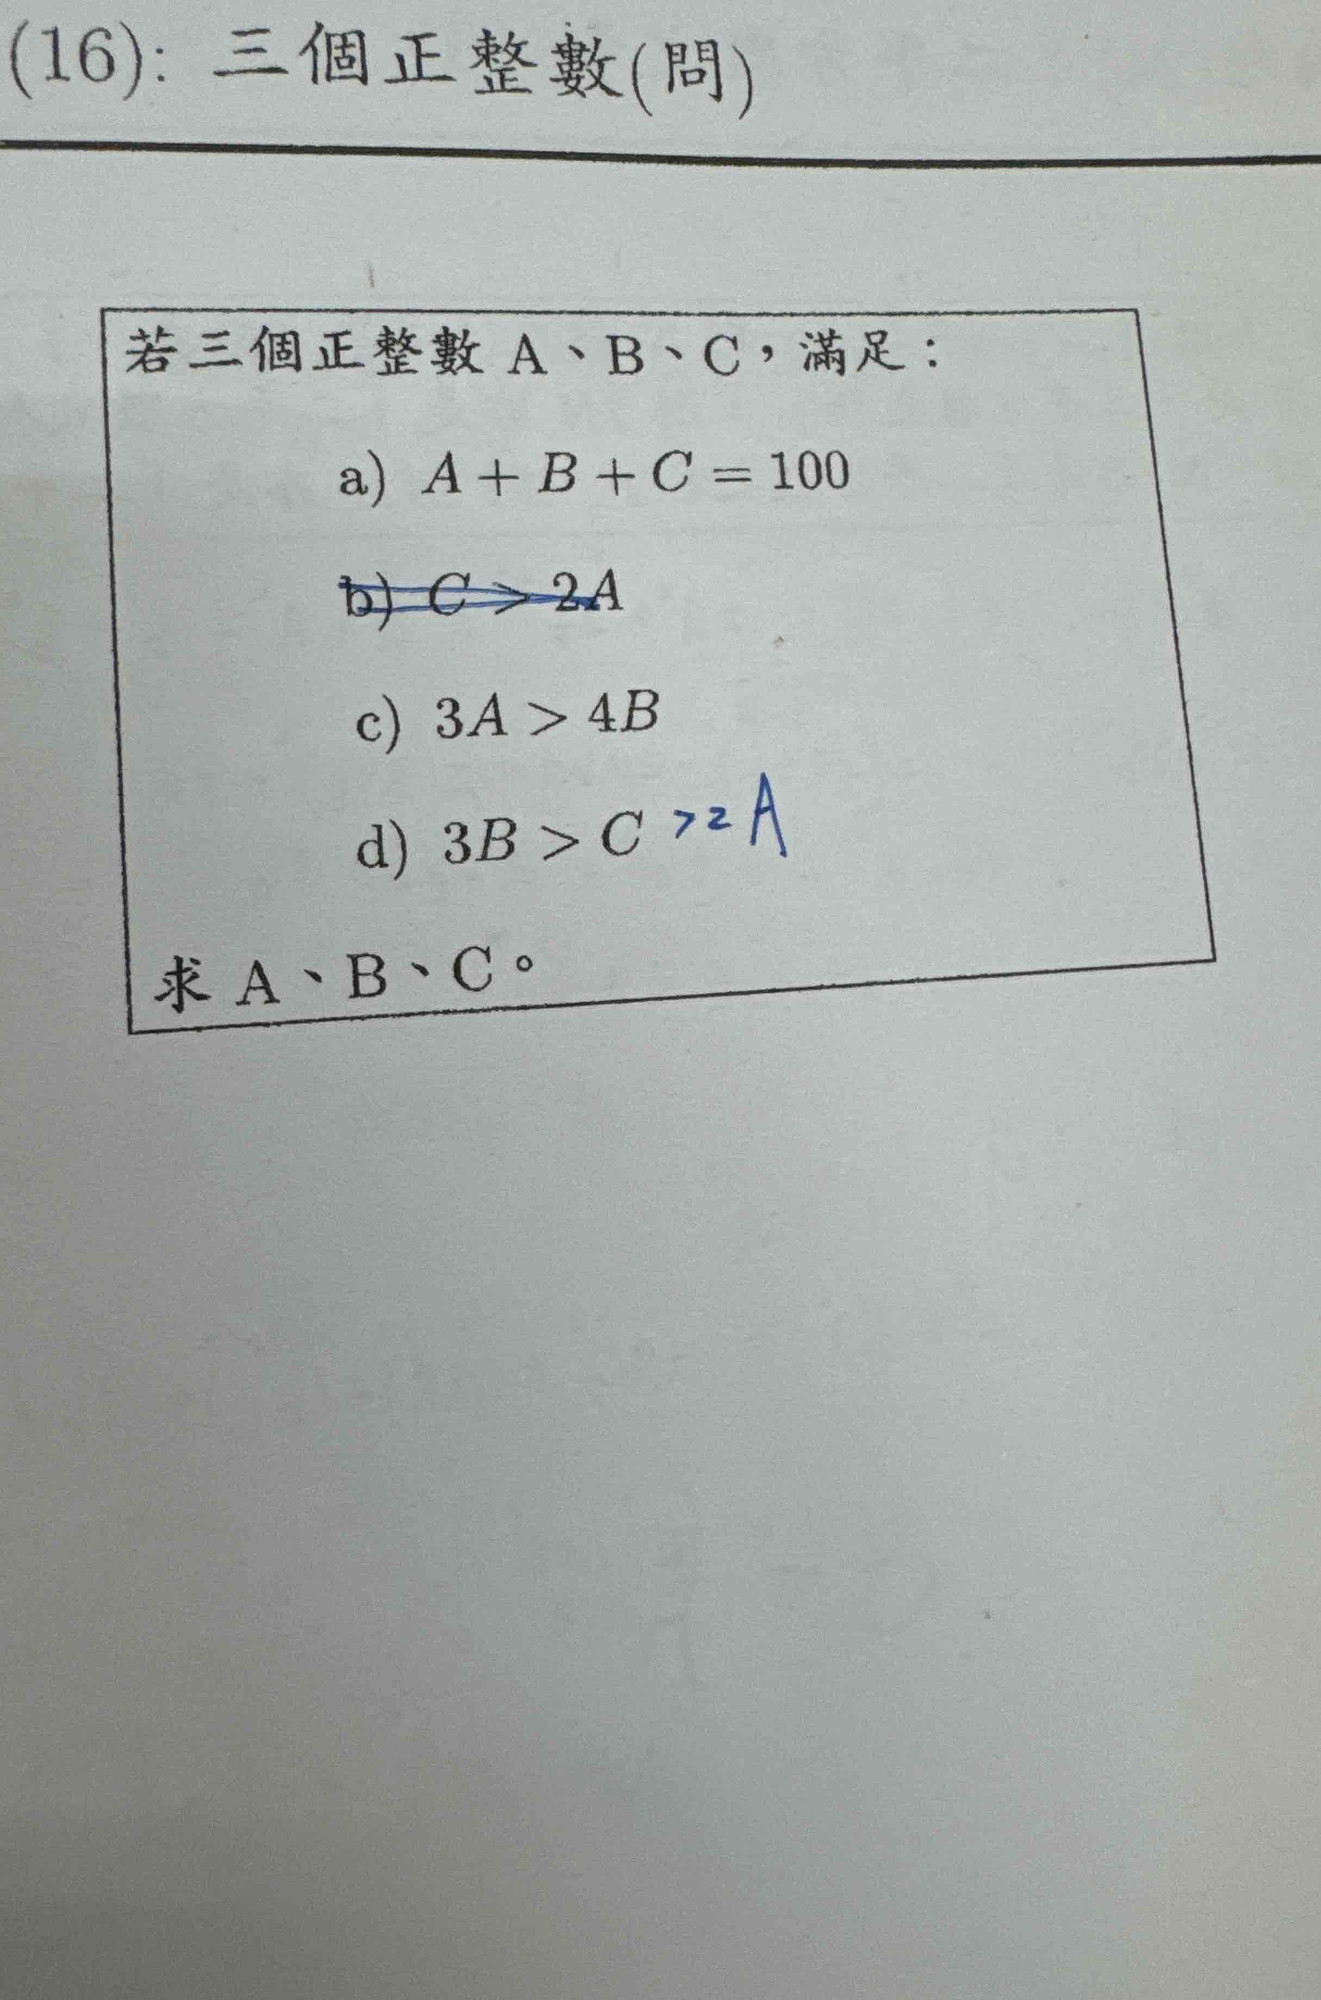 (16): 三個正整數(問)
若三個正整數 A、B、C，滿足：
a) A + B + C = 100
b) C > 2A
c) 3A > 4B
d) 3B > C >2A
求 A、B、C。